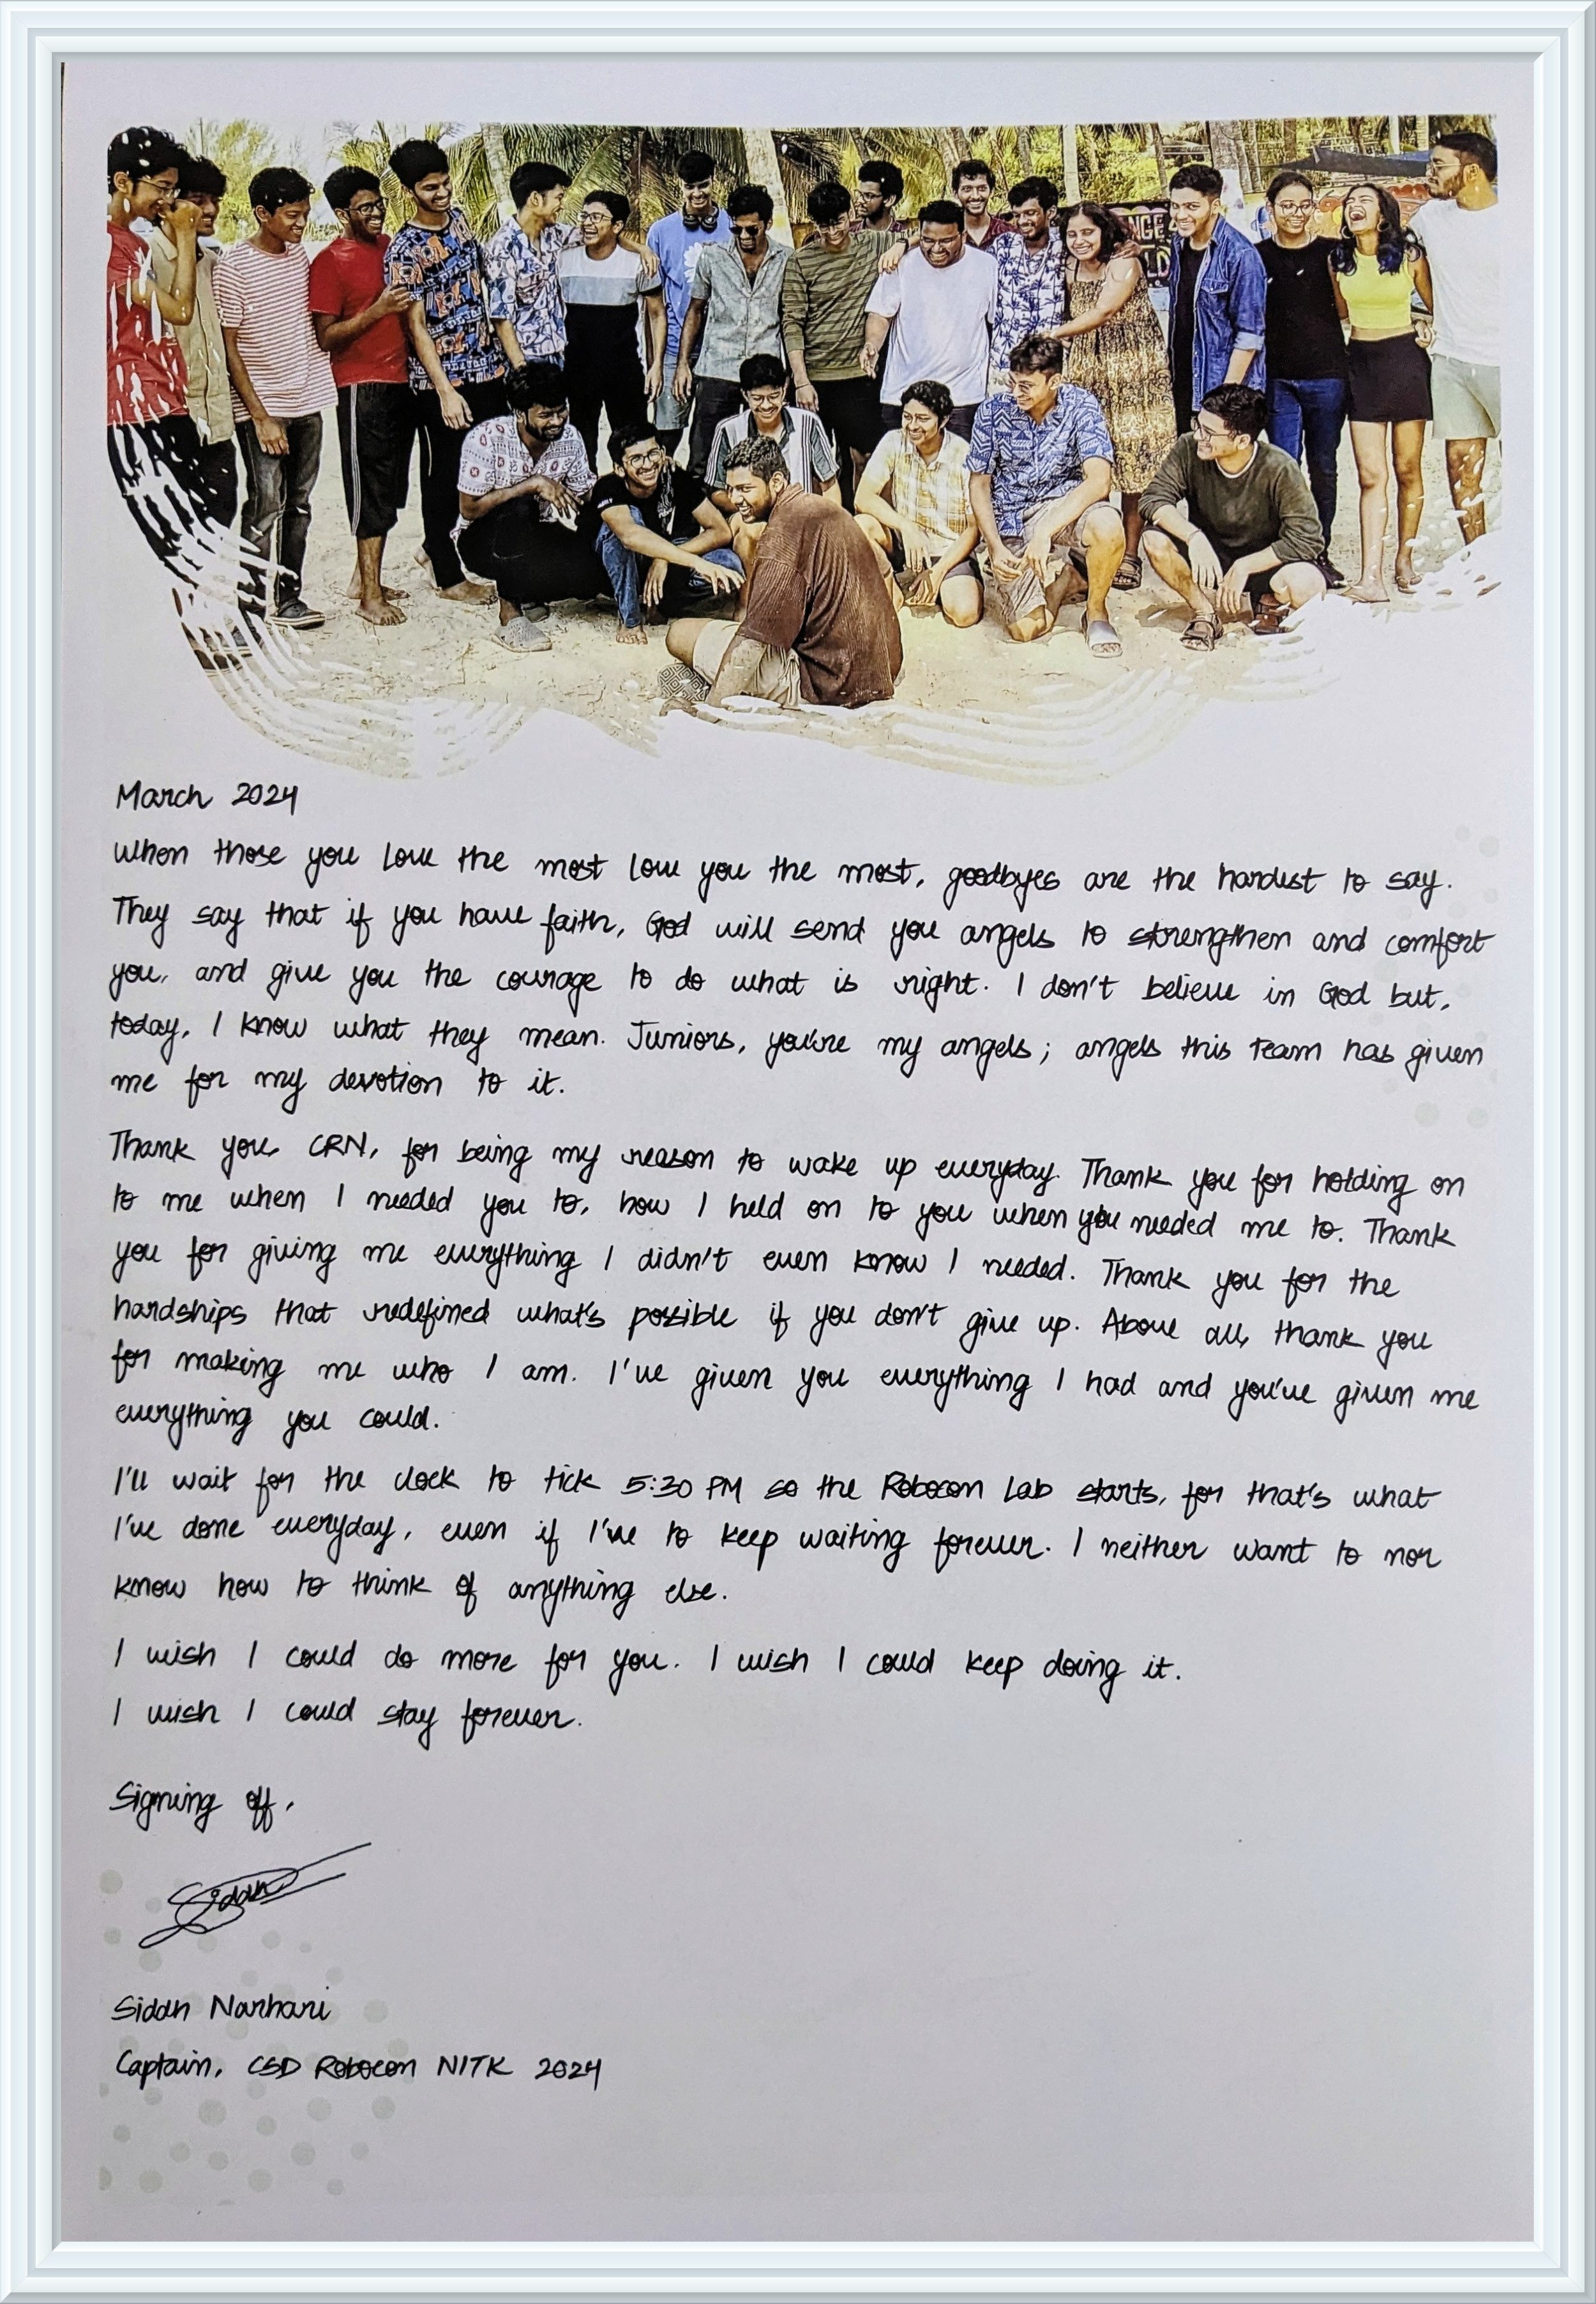 NGE
LD
March 2024
When those you love the most love you the most, goodbyes are the hardest to say.
They say that if you have faith, God will send you angels to strengthen and comfort
you, and give you the courage to do what is right. I don't believe in God but,
today, I know what they mean. Juniors, you're my angels; angels this team has given
me for my devotion to it.
Thank you, CRN, for being my reason to wake up everyday. Thank you for holding on
to me when I needed you to, how I held on to you when you needed me to. Thank
you for giving me everything I didn't even know I needed. Thank you for the
hardships that redefined what's possible if you don't give up. Above all, thank you
for making me who I am. I've given you everything I had and you've given me
everything you could.
I'll wait for the clock to tick 5:30 PM so the Robocon Lab starts, for that's what
I've done everyday, even if I've to keep waiting forever. I neither want to nor
know how to think of anything else.
I wish I could do more for you. I wish I could keep doing it.
I wish I could stay forever.
Signing off,
Siddh
Siddh Narhari
Captain, CSD Robocon NITK 2024